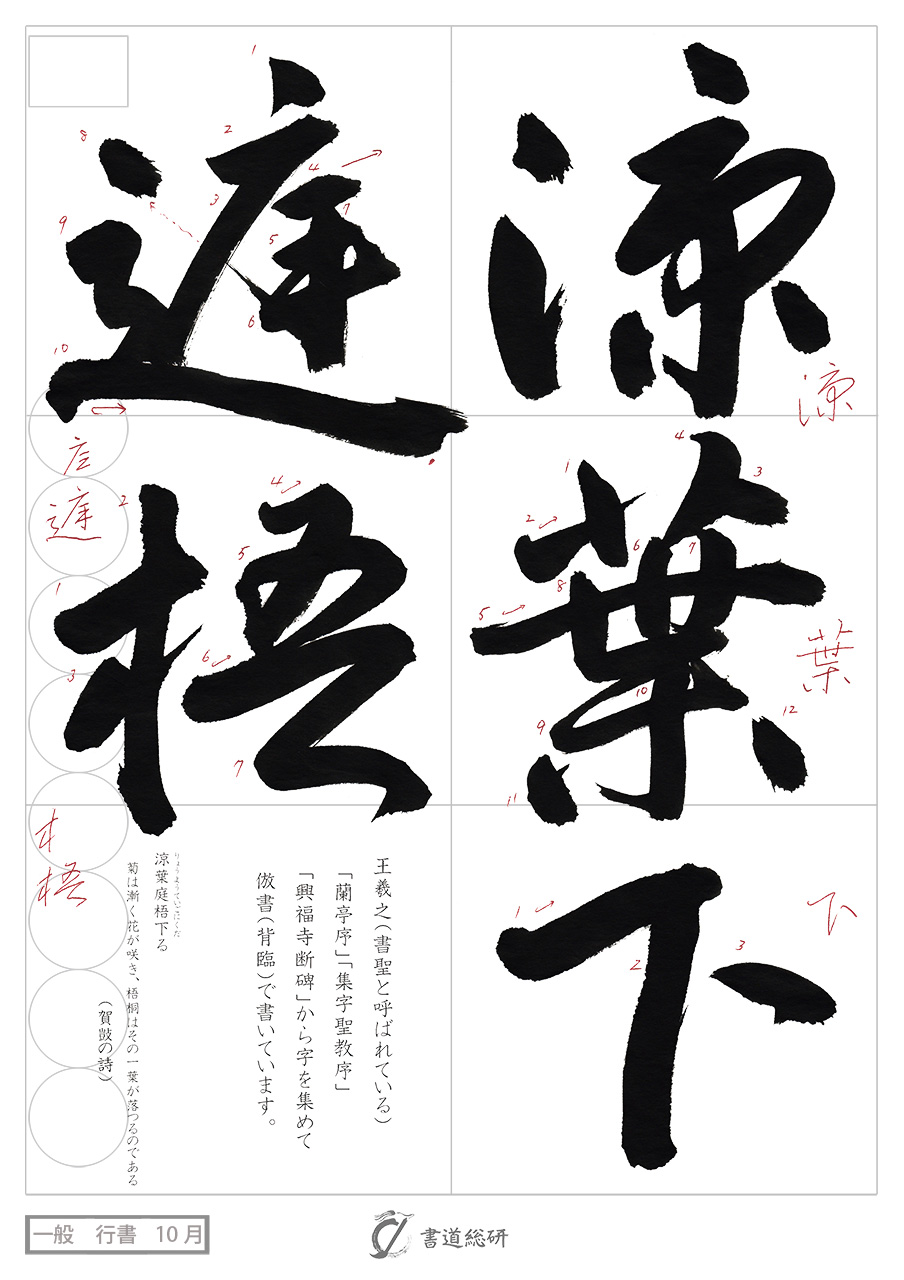 涼葉下
庭梧
涼
葉
下
庭
梧
王羲之(書聖と呼ばれている)
「蘭亭序」「集字聖教序」
「興福寺断碑」から字を集めて
倣書(背臨)で書いています。
りょうようていごにくだ
涼葉庭梧下る
菊は漸く花が咲き、梧桐はその一葉が落つるのである
(賀鼓の詩)
一般 行書 10月
書道総研